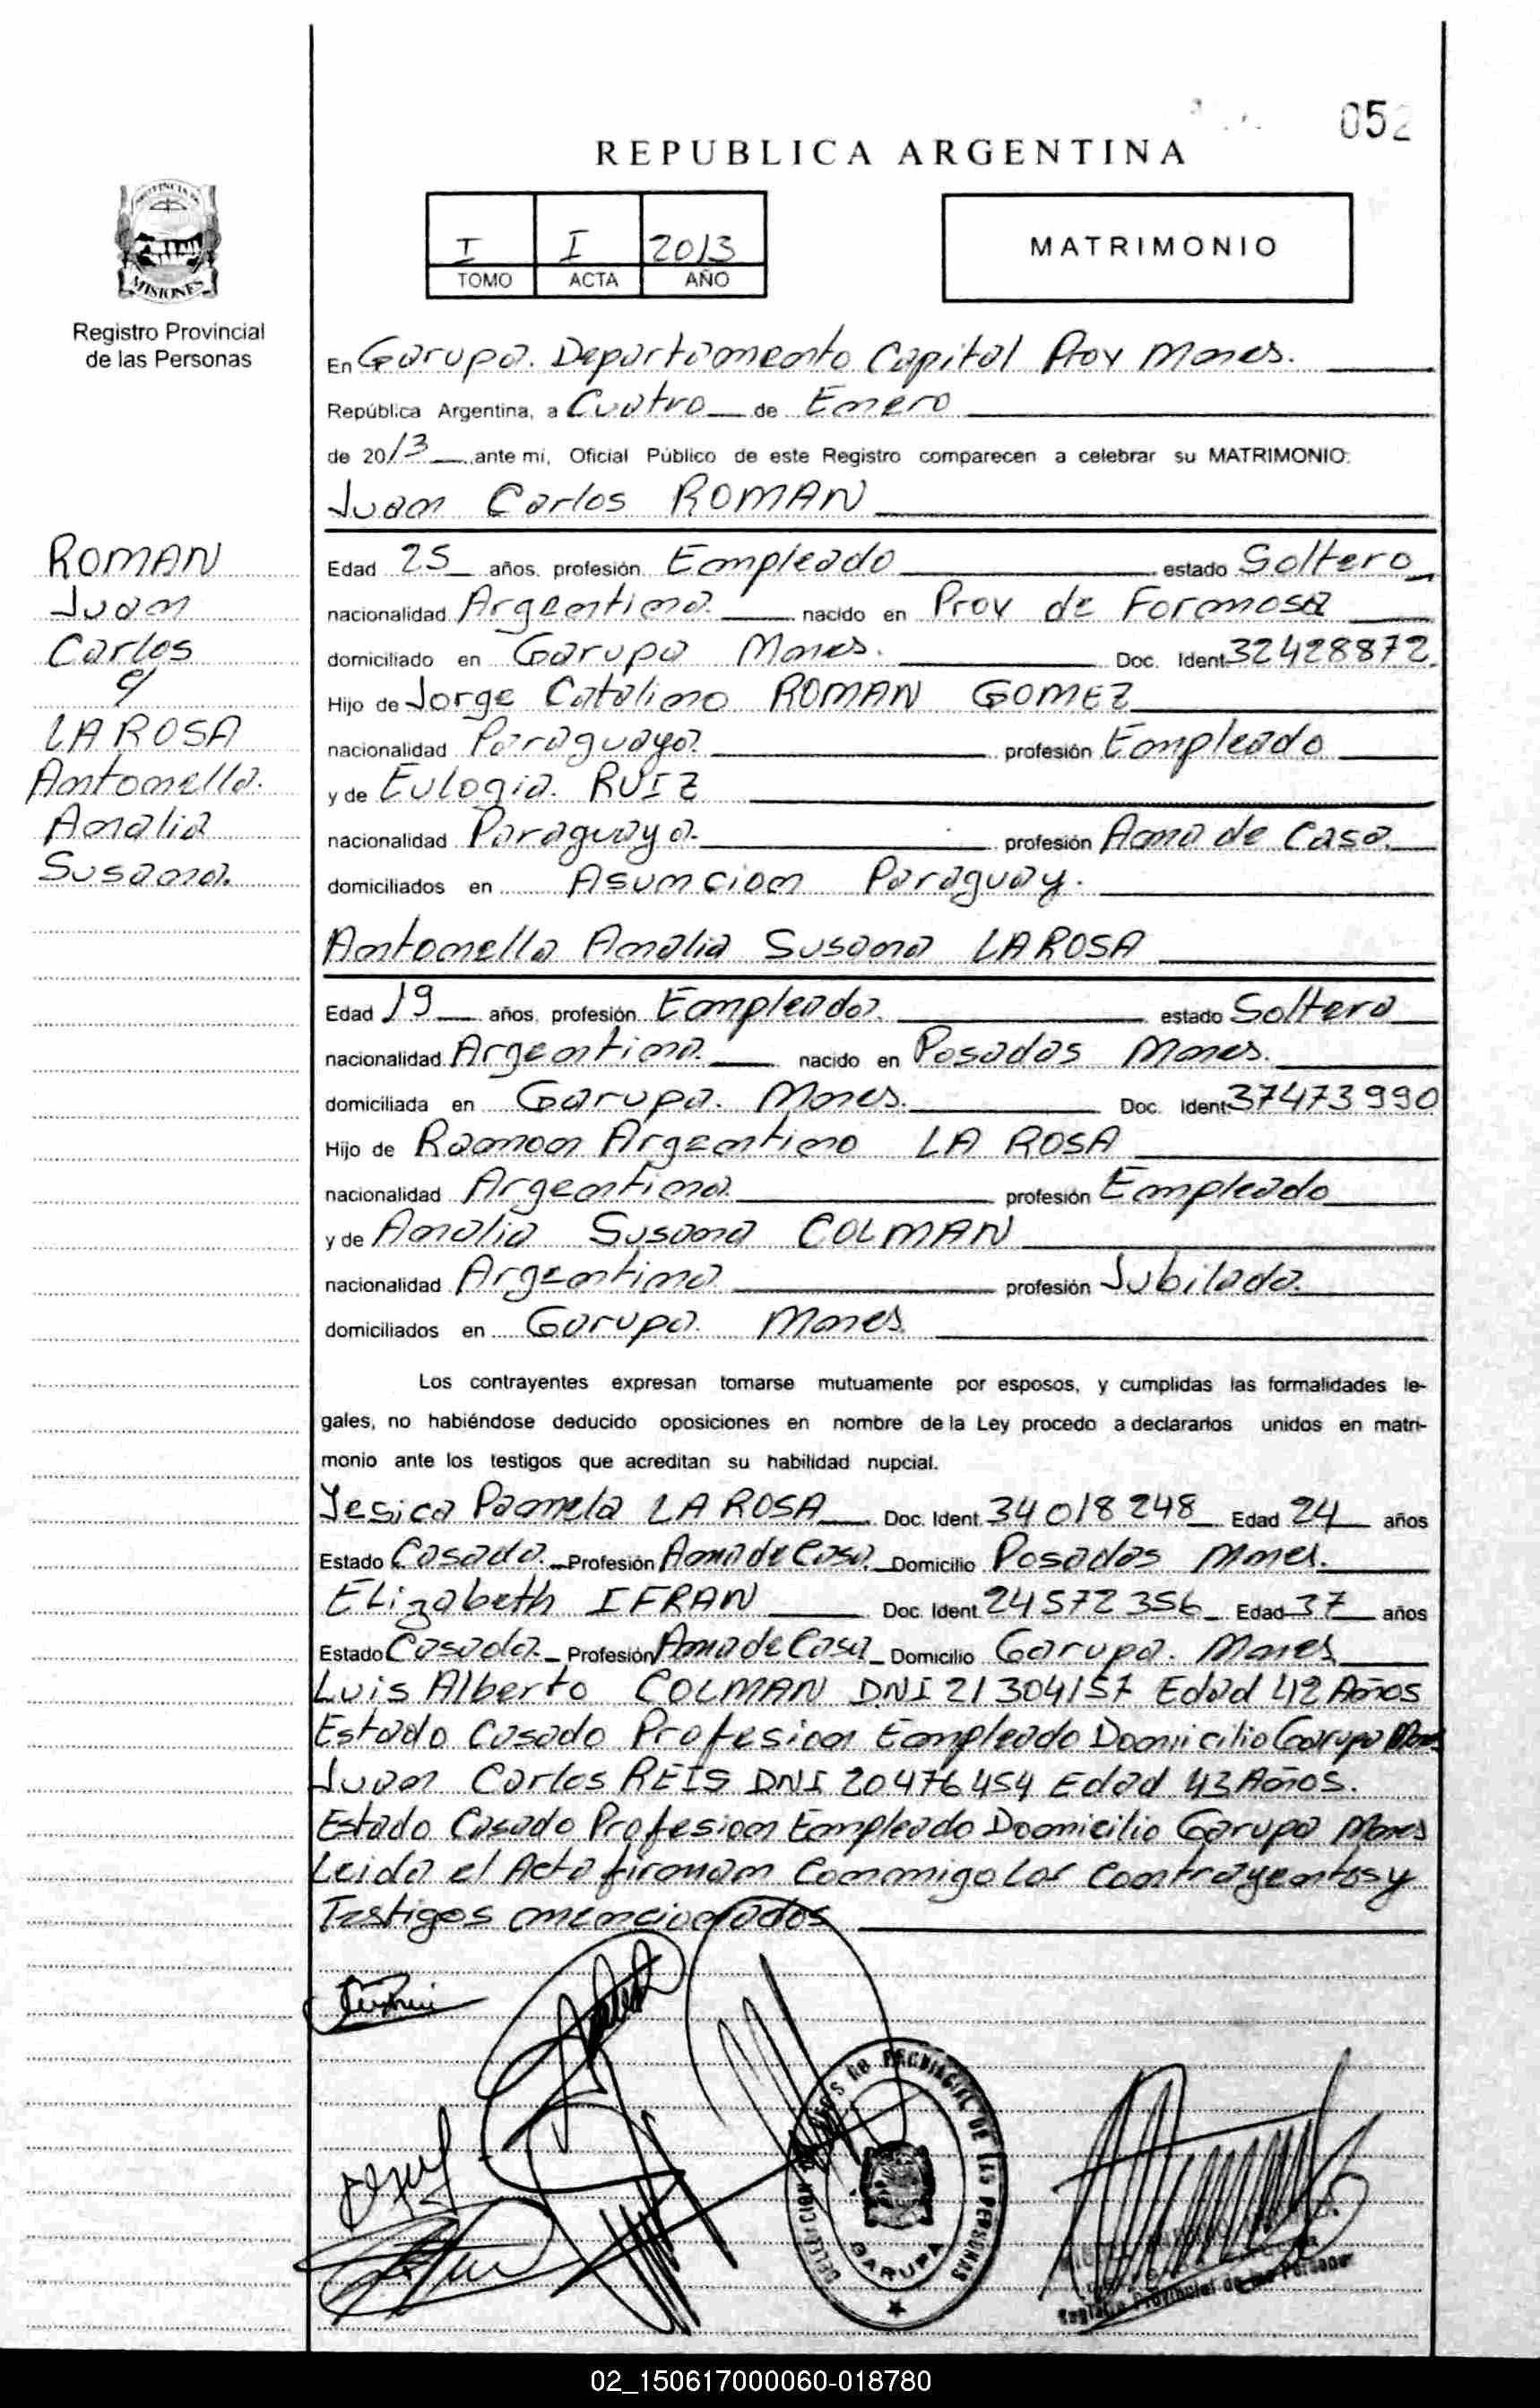 052
REPUBLICA ARGENTINA
PROVINCIA DE
MISIONES
Registro Provincial
de las Personas
I I 2013
TOMO ACTA AÑO
MATRIMONIO
En Garupa. Departamento Capital Prov Mones.
República Argentina, a Cuatro de Enero
de 2013 ante mi, Oficial Público de este Registro comparecen a celebrar su MATRIMONIO:
Juan Carlos ROMAN
ROMAN
Juan
Carlos
c/
LA ROSA
Antonella
Amalia
Susana.
Edad 25 años, profesión Empleado estado Soltero
nacionalidad Argentina nacido en Prov de Formosa
domiciliado en Garupa Mones. Doc. Ident. 32428872
Hijo de Jorge Catalino ROMAN GOMEZ
nacionalidad Paraguaya profesión Empleado
y de Eulogia RUIZ
nacionalidad Paraguaya profesión Ama de Casa
domiciliados en Asuncion Paraguay.
Antonella Amalia Susana LA ROSA
Edad 19 años, profesión Empleada estado Soltera
nacionalidad Argentina nacido en Posadas Mones.
domiciliada en Garupa. Mones. Doc. Ident. 37473990
Hijo de Ramon Argentino LA ROSA
nacionalidad Argentina profesión Empleado
y de Amalia Susana COLMAN
nacionalidad Argentina profesión Jubilada.
domiciliados en Garupa. Mones
Los contrayentes expresan tomarse mutuamente por esposos, y cumplidas las formalidades le-
gales, no habiéndose deducido oposiciones en nombre de la Ley procedo a declararlos unidos en matri-
monio ante los testigos que acreditan su habilidad nupcial.
Yesica Pamela LA ROSA Doc. Ident. 34018248 Edad 24 años
Estado Casada Profesión Ama de Casa Domicilio Posadas Mones.
Elizabeth IFRAN Doc. Ident. 24572356 Edad 37 años
Estado Casada Profesión Ama de Casa Domicilio Garupa. Mones
Luis Alberto COLMAN DNI 21304157 Edad 42 Años
Estado Casado Profesion Empleado Domicilio Garupa Mones
Juan Carlos REIS DNI 20476454 Edad 43 Años.
Estado Casado Profesion Empleado Domicilio Garupa Mones
Leida el Acta firman Conmigo Los Contrayentes y
Testigos mencionados
PROVINCIAL DE LAS PERSONAS
GARUPA
Registro Provincial de las Personas
02_150617000060-018780